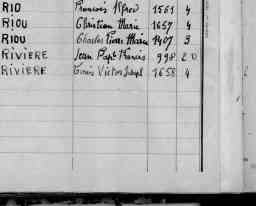 RIO François Alfred 1561 4
RIOU Christian Marie 1657 4
RIOU Charles Pierre Marie 1407 3
RIVIERE Jean Bapt Francis 998 20
RIVIERE Louis Victor Joseph 1658 4